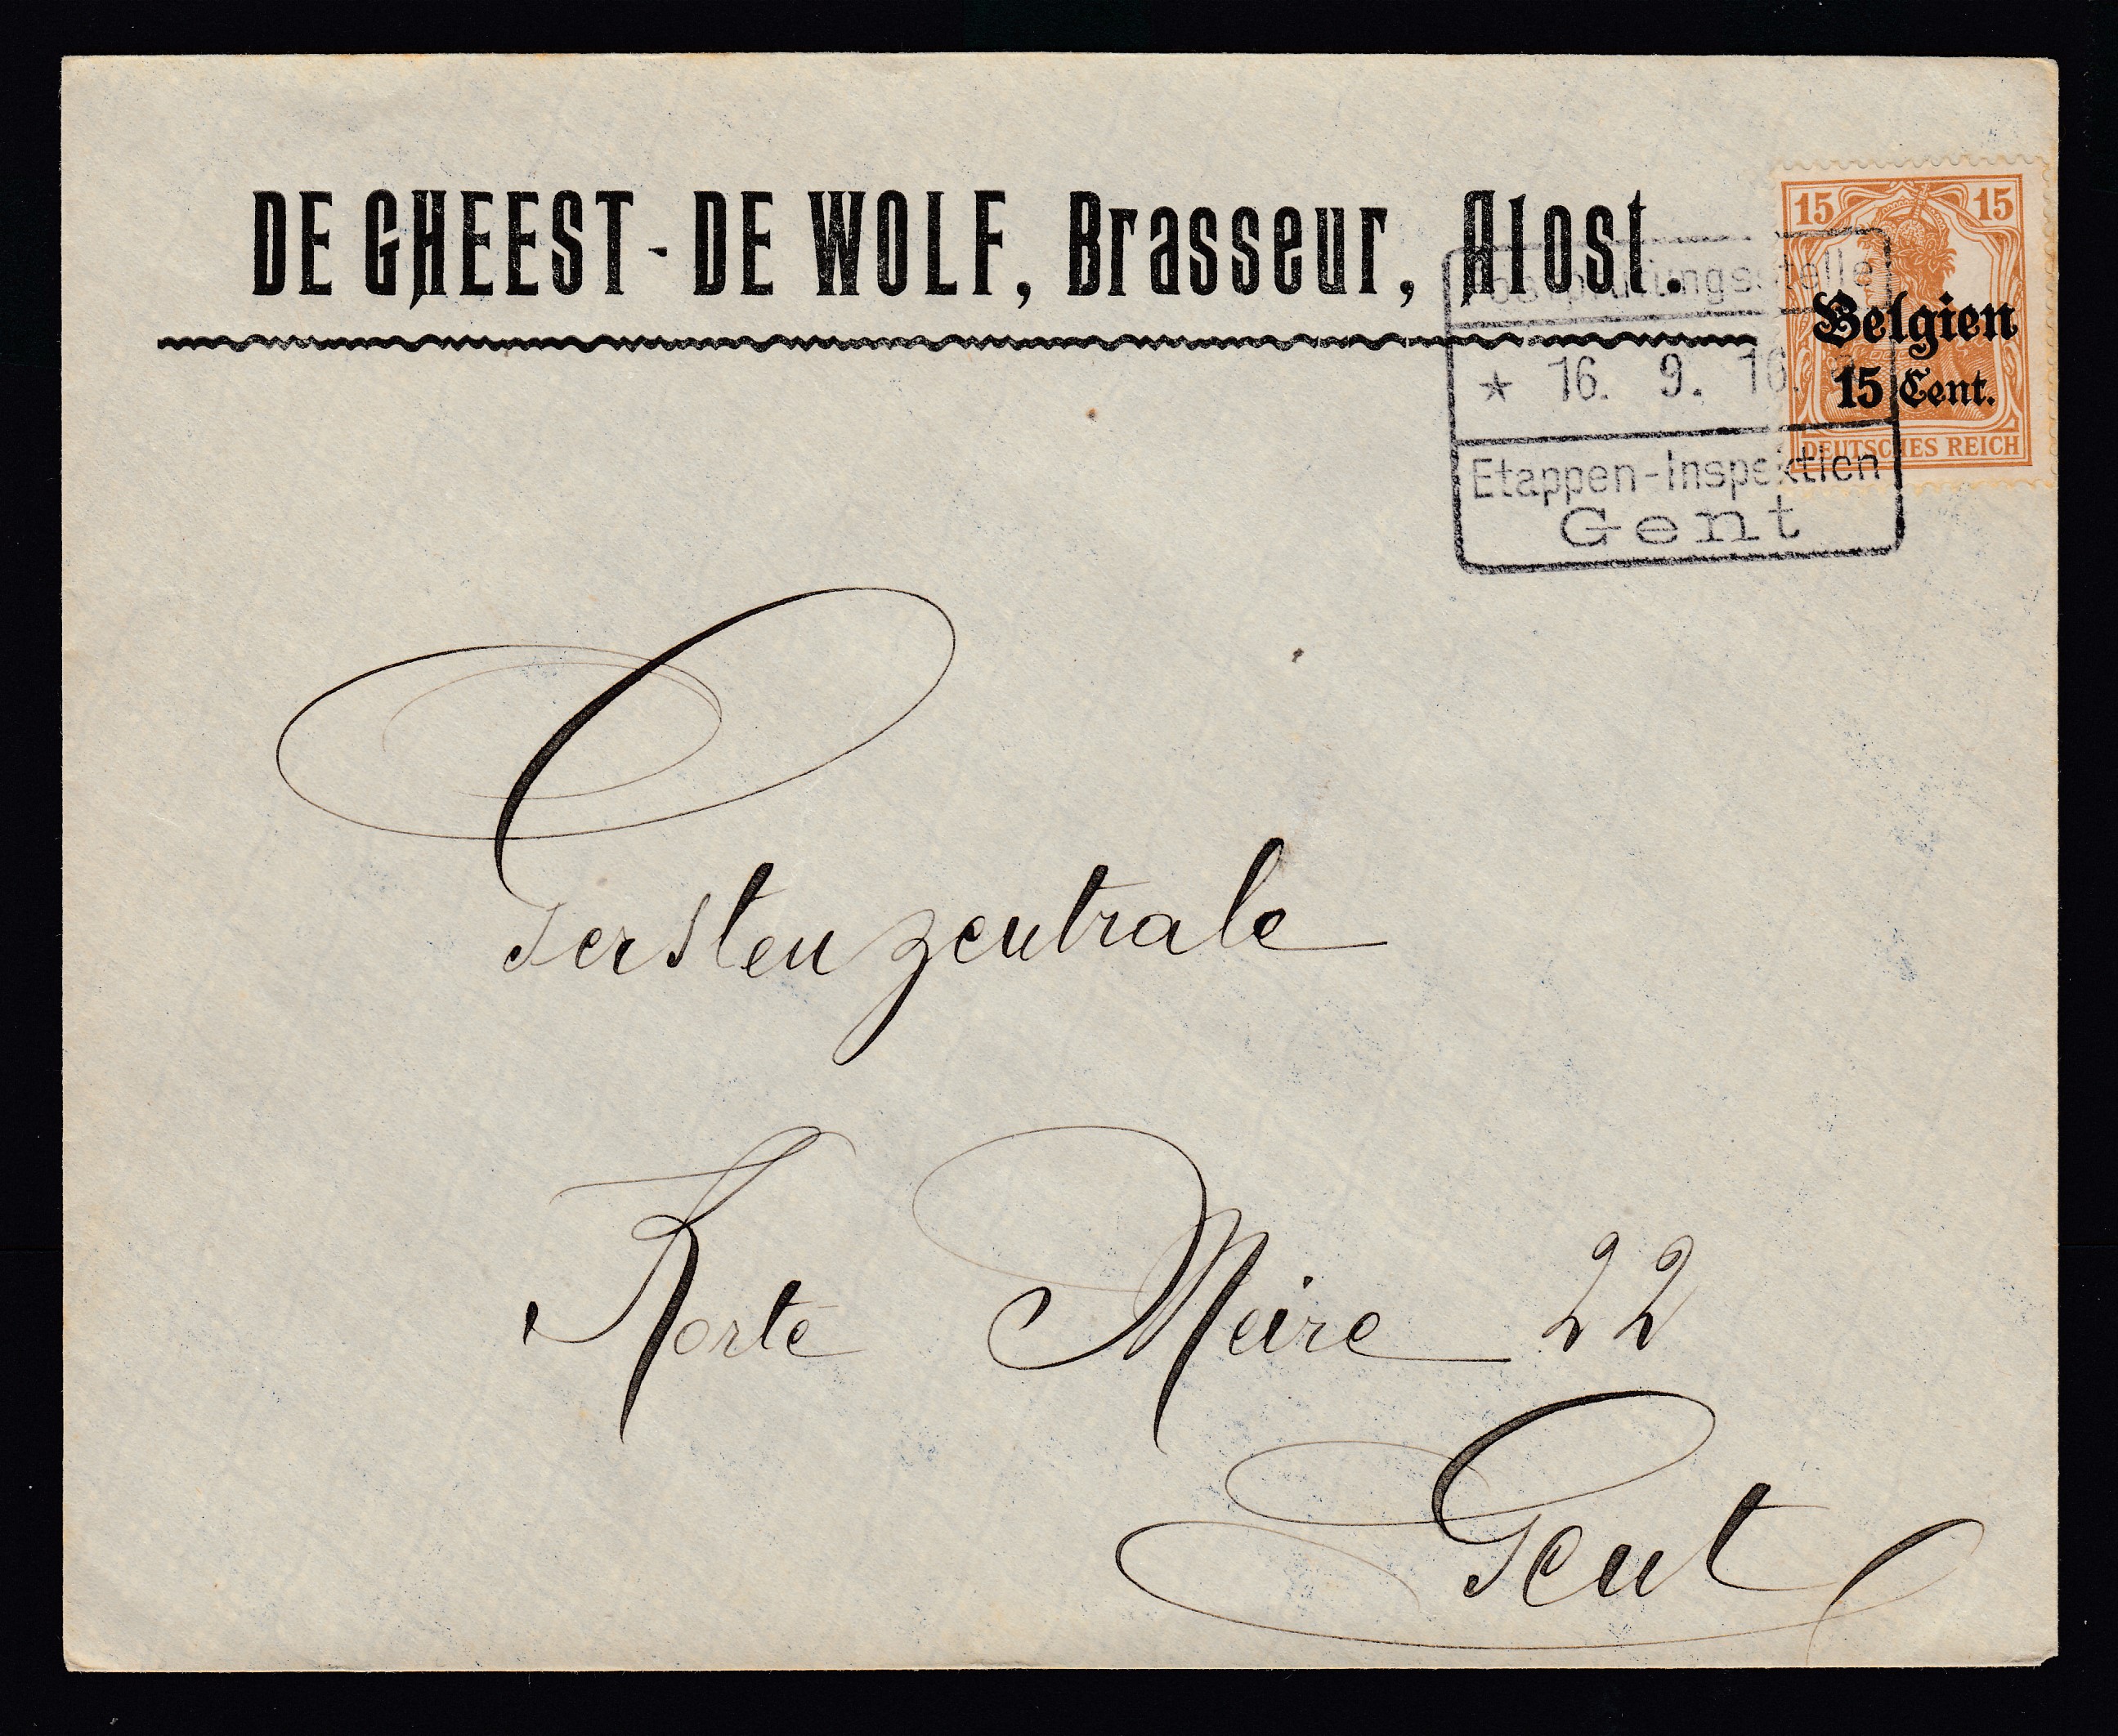 DE GHEEST - DE WOLF, Brasseur, Alost.
15 15
Belgien
15 Cent.
DEUTSCHES REICH
Postprüfungsstelle
* 16. 9. 16.
Etappen-Inspektion
Gent
Gerstenzentrale
Korte Meire 22
Gent